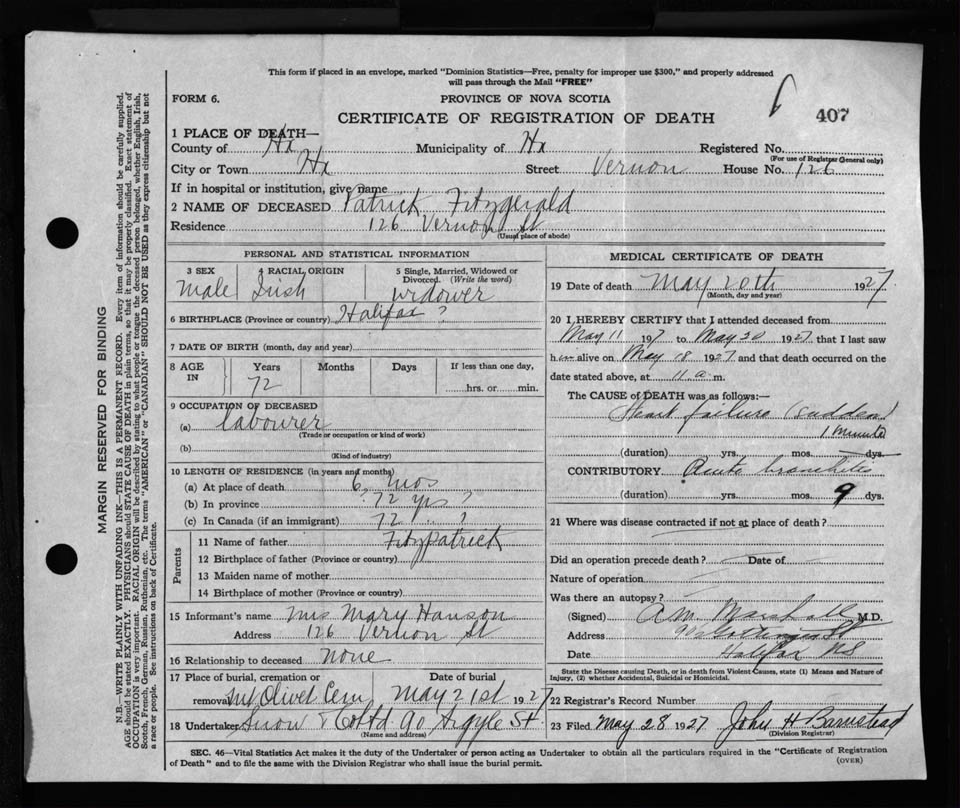 This form if placed in an envelope, marked "Dominion Statistics—Free, penalty for improper use $300," and properly addressed
will pass through the Mail "FREE"
FORM 6.
PROVINCE OF NOVA SCOTIA
407
CERTIFICATE OF REGISTRATION OF DEATH
1 PLACE OF DEATH—
County of Hx Municipality of Hx Registered No.
(For use of Registrar General only)
City or Town Hx Street Vernon House No. 126
If in hospital or institution, give name
2 NAME OF DECEASED Patrick Fitzgerald
Residence 126 Vernon St
(Usual place of abode)
PERSONAL AND STATISTICAL INFORMATION
3 SEX 4 RACIAL ORIGIN 5 Single, Married, Widowed or
Divorced. (Write the word)
Male Irish widower
6 BIRTHPLACE (Province or country) Halifax ?
7 DATE OF BIRTH (month, day and year)
8 AGE IN Years Months Days If less than one day,
72 hrs. or min.
9 OCCUPATION OF DECEASED
(a) labourer
(Trade or occupation or kind of work)
(b)
(Kind of industry)
10 LENGTH OF RESIDENCE (in years and months)
(a) At place of death 6 mos
(b) In province 72 yrs ?
(c) In Canada (if an immigrant) 72 " ?
Parents
11 Name of father Fitzpatrick
12 Birthplace of father (Province or country)
13 Maiden name of mother
14 Birthplace of mother (Province or country)
15 Informant's name Mrs Mary Hanson
Address 126 Vernon St
16 Relationship to deceased none
17 Place of burial, cremation or
removal Mt Olivet Cem May 21st 1927
18 Undertaker Snow & Co Ltd 90 Argyle St
(Name and address)
MEDICAL CERTIFICATE OF DEATH
19 Date of death May 20th 1927
(Month, day and year)
20 I HEREBY CERTIFY that I attended deceased from
May 11 1927 to May 20 1927 that I last saw
him alive on May 18 1927 and that death occurred on the
date stated above, at 11 a. m.
The CAUSE of DEATH was as follows:—
Heart failure (sudden)
1 minute
(duration) yrs. mos. dys.
CONTRIBUTORY Acute bronchitis
(duration) yrs. mos. 9 dys.
21 Where was disease contracted if not at place of death?
Did an operation precede death? Date of
Nature of operation
Was there an autopsy?
(Signed) M.D.
Address
Date Halifax NS
State the Disease causing Death, or in death from Violent Causes, state (1) Means and Nature of
Injury, (2) whether Accidental, Suicidal or Homicidal.
22 Registrar's Record Number
23 Filed May 28 1927 John H Barnstead
(Division Registrar)
SEC. 46—Vital Statistics Act makes it the duty of the Undertaker or person acting as Undertaker to obtain all the particulars required in the "Certificate of Registration
of Death" and to file the same with the Division Registrar who shall issue the burial permit.
(OVER)
MARGIN RESERVED FOR BINDING
N.B.—WRITE PLAINLY WITH UNFADING INK—THIS IS A PERMANENT RECORD. Every item of information should be carefully supplied.
AGE should be stated EXACTLY. PHYSICIANS should STATE CAUSE OF DEATH in plain terms, so that it may be properly classified. Exact statement of
OCCUPATION is very important. RACIAL ORIGIN will be described by stating to what people or tongue the deceased person belonged, whether English, Irish,
Scotch, French, German, Russian, Ruthenian, etc. The terms "AMERICAN" or "CANADIAN" SHOULD NOT BE USED as they express citizenship but not
a race or people. See instructions on back of Certificate.